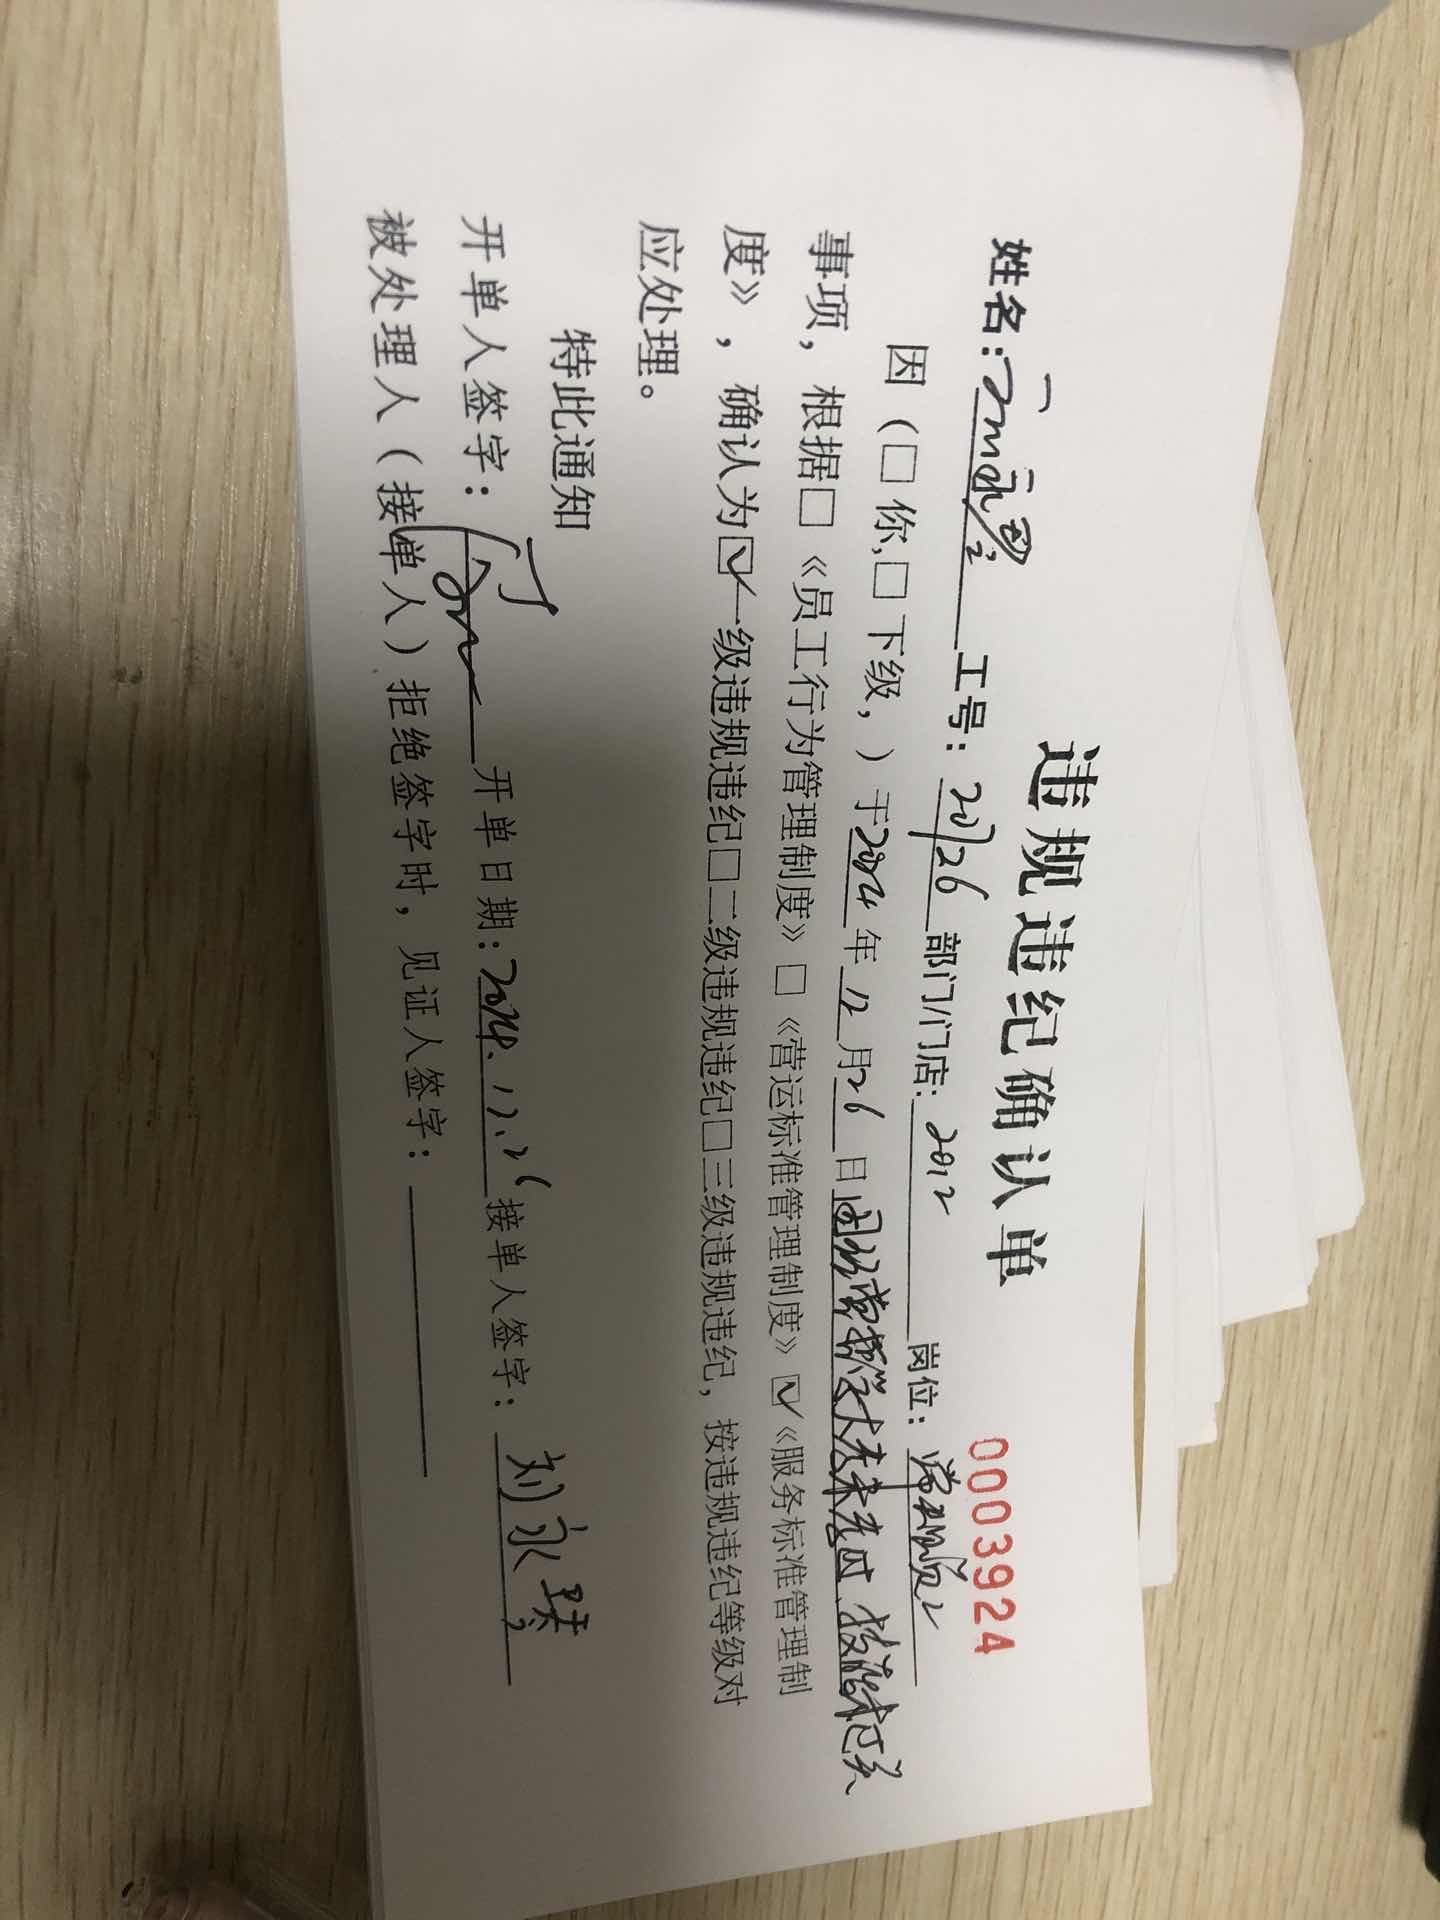 违规违纪确认单
00039924
姓名: 工号: 20726 部门/门店: 2012 岗位:
因（□你,□下级，）于2024年12月26日
事项，根据□《员工行为管理制度》□《营运标准管理制度》☑《服务标准管理制
度》，确认为☑一级违规违纪□二级违规违纪□三级违规违纪，按违规违纪等级对
应处理。
特此通知
开单人签字: 开单日期: 2024.12.26 接单人签字: 刘永琪
被处理人（接单人）拒绝签字时，见证人签字: